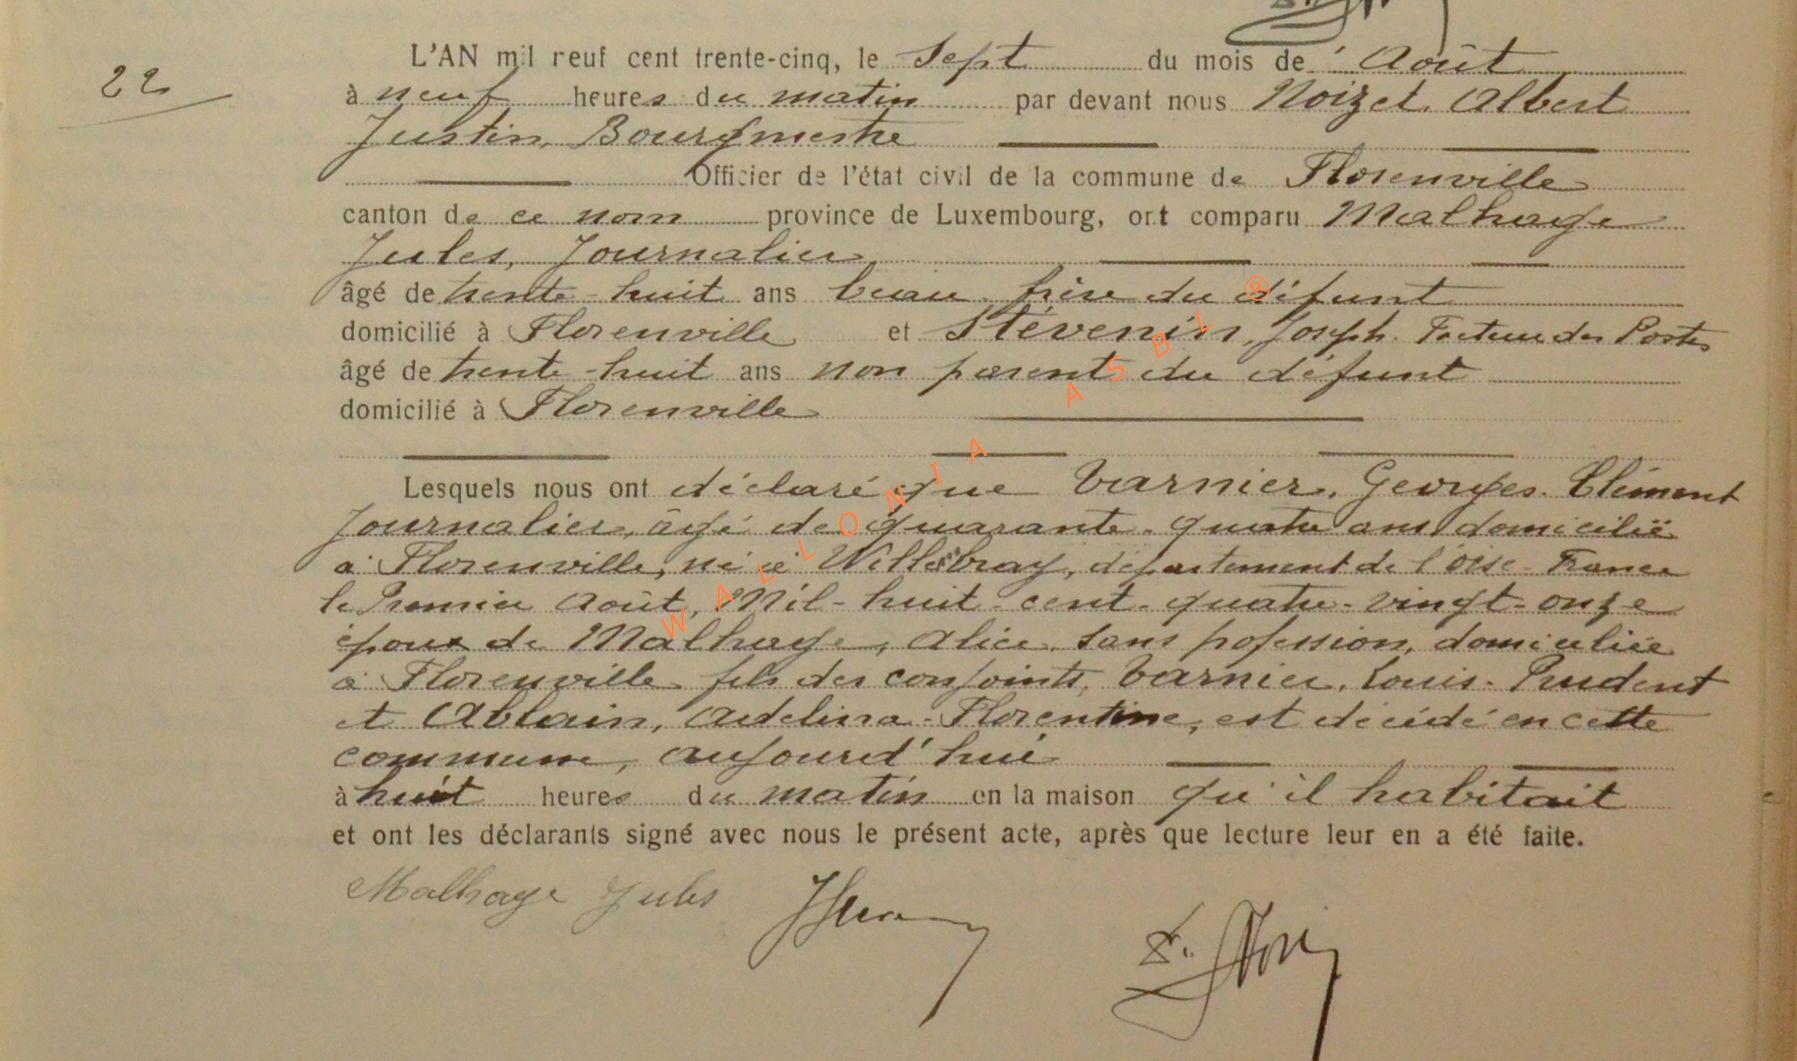 22
L'AN mil neuf cent trente-cinq, le Sept du mois de Août
à neuf heures du matin par devant nous Noizet, Albert
Justin, Bourgmestre
Officier de l'état civil de la commune de Florenville
canton de ce nom province de Luxembourg, ont comparu Malhage
Jules, Journalier,
âgé de trente-huit ans beau-frère du défunt
domicilié à Florenville et Stévenin, Joseph. Facteur des Postes
âgé de trente-huit ans non parent du défunt
domicilié à Florenville
Lesquels nous ont déclaré que Varnier, Georges-Clément
Journalier, âgé de quarante-quatre ans, domicilié
à Florenville, né à Willebray, département de l'oise-France
le Premier Août, Mil-huit-cent-quatre-vingt-onze
époux de Malhage, Alice, sans profession, domiciliée
à Florenville fils des conjoints, Varnier, Louis-Prudent
et Ablain, Adelina-Florentine, est décédé en cette
commune, aujourd'hui
à huit heures du matin en la maison qu'il habitait
et ont les déclarants signé avec nous le présent acte, après que lecture leur en a été faite.
Malhage Jules
WALLONIA ASBL ®